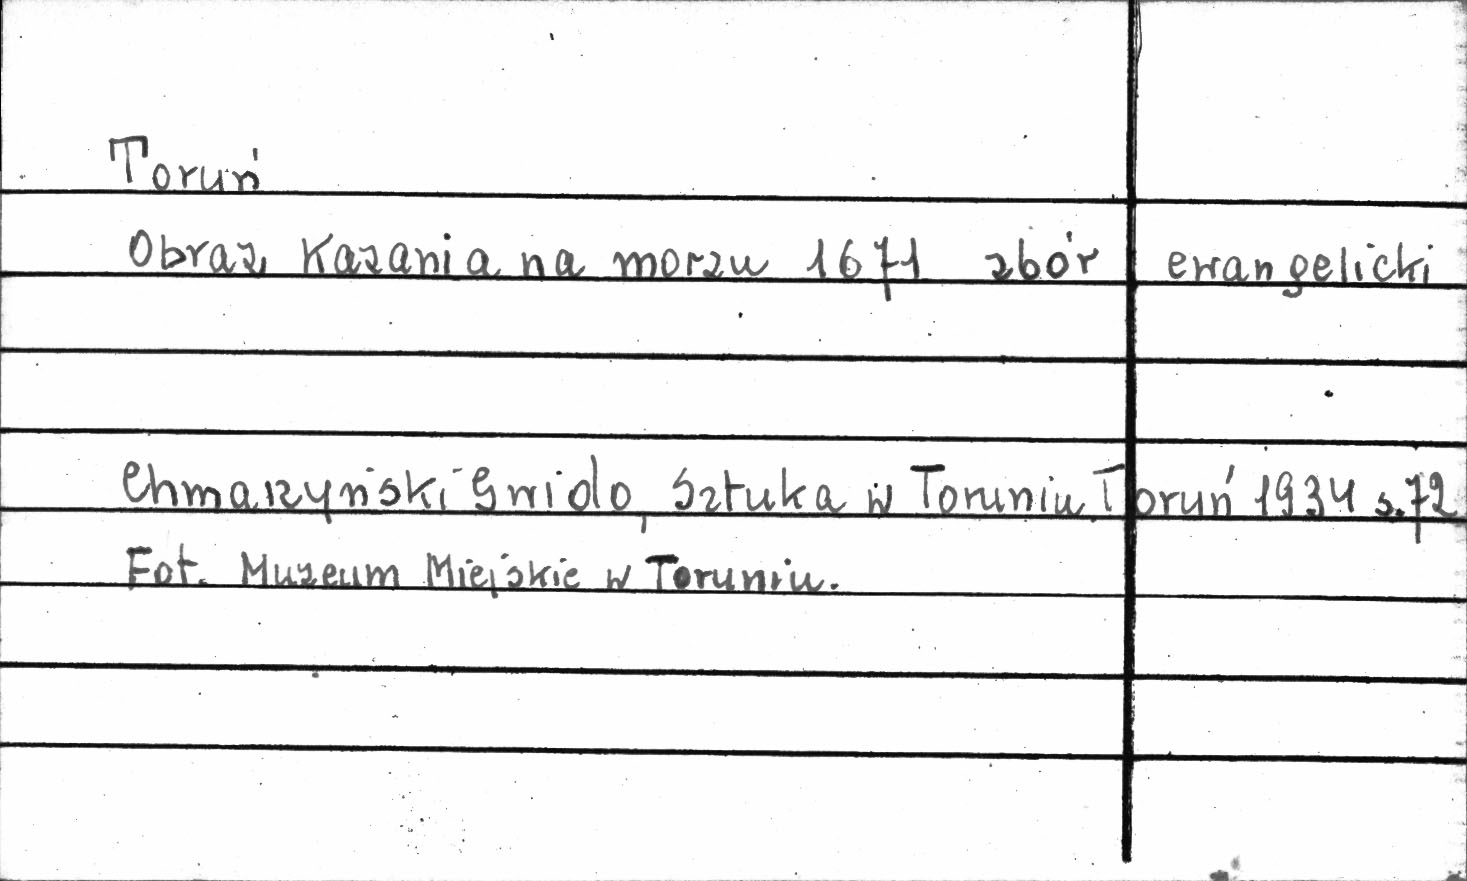 Toruń
Obraz, Kazania na morzu 1671 zbór ewangelicki
Chmarzyński Gwido, Sztuka w Toruniu. Toruń 1934 s.72
Fot. Muzeum Miejskie w Toruniu.